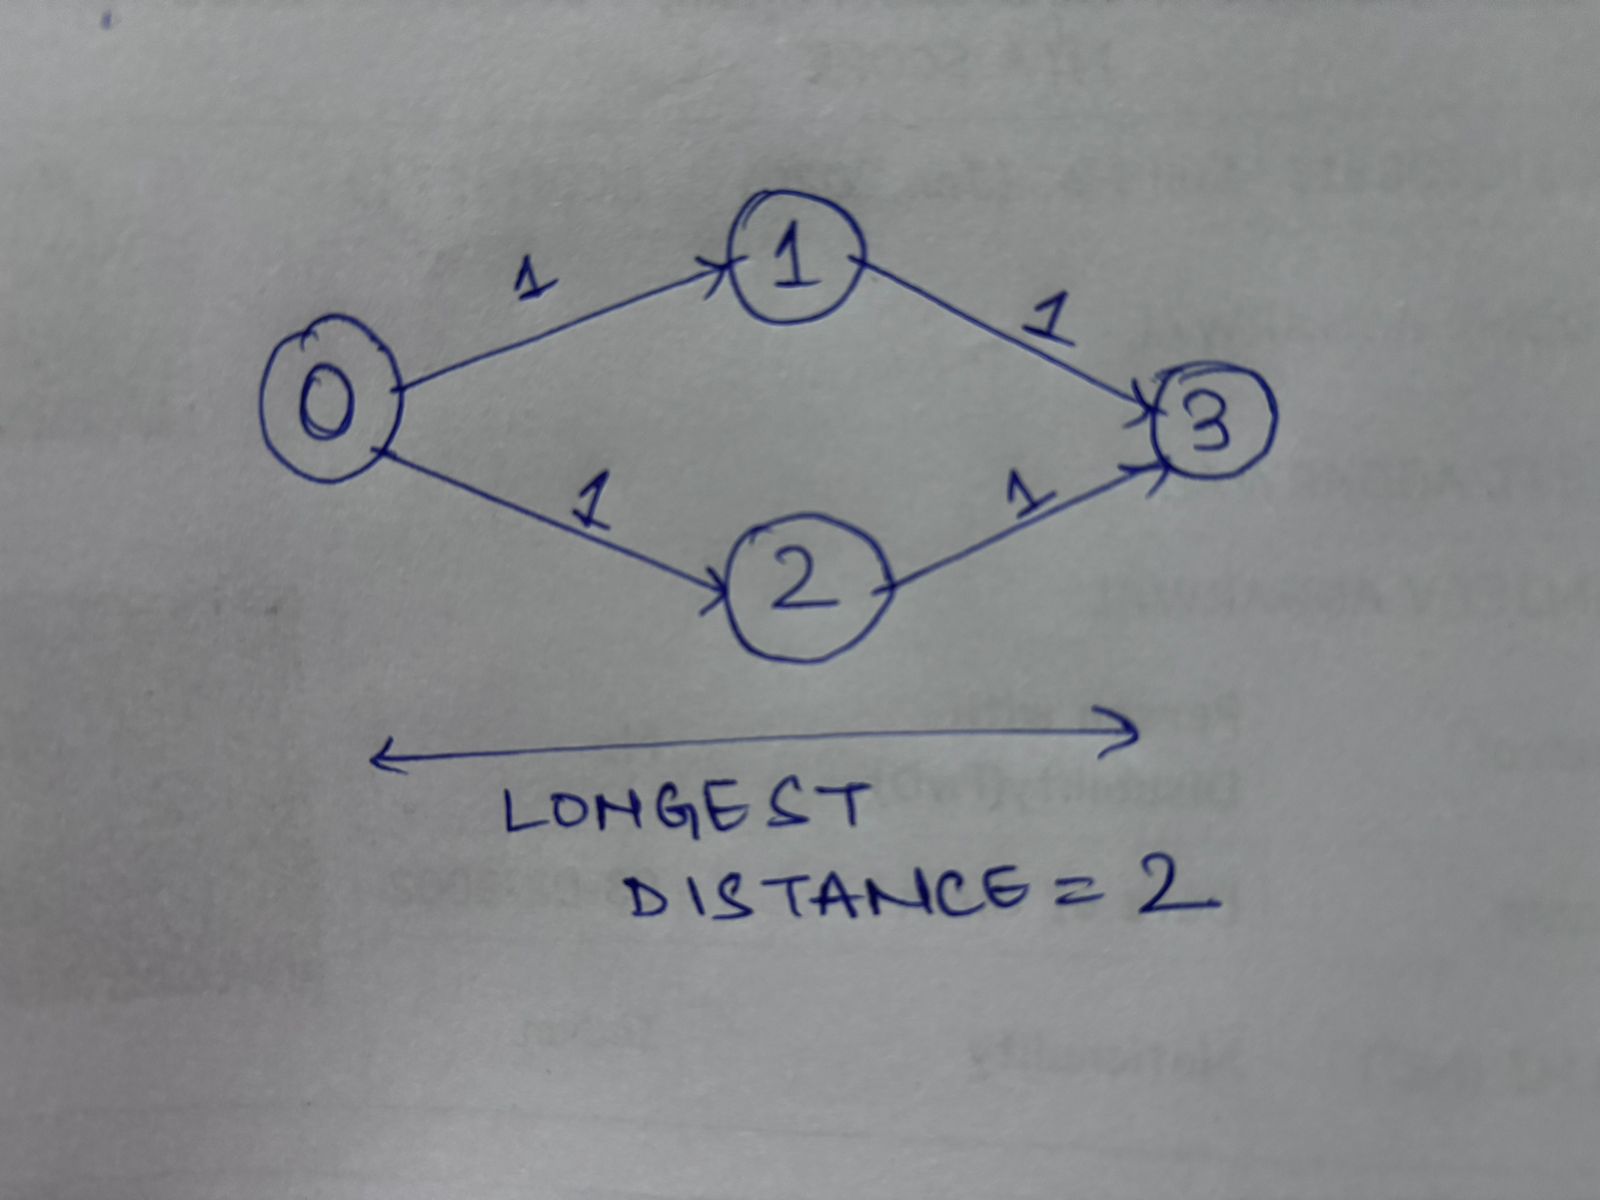 1
1
1
0
3
1
1
2
LONGEST
DISTANCE = 2